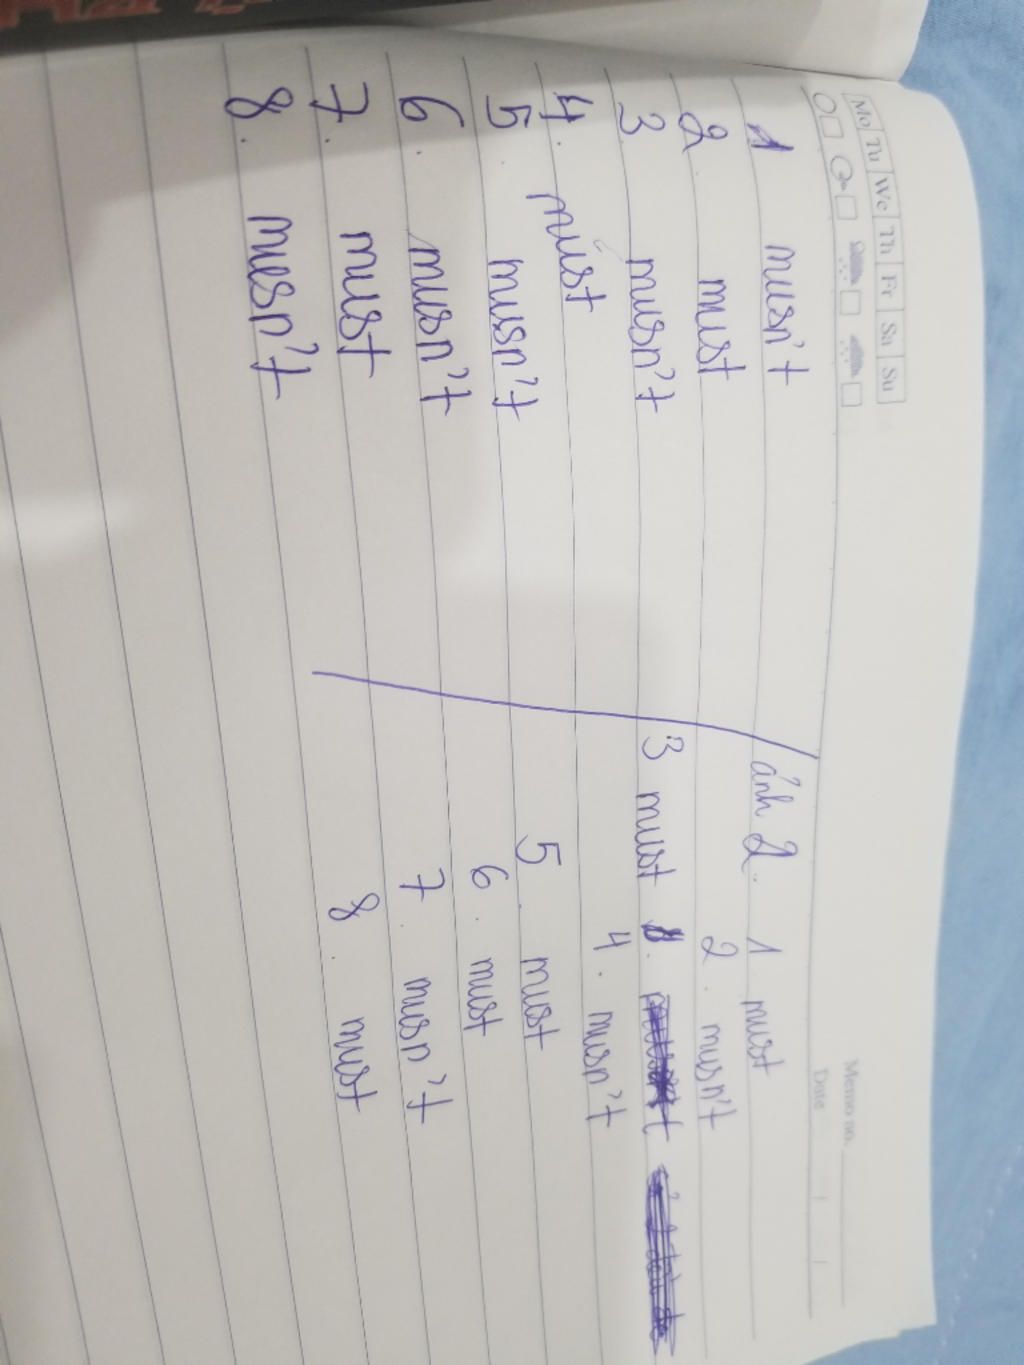 Mo Tu We Th Fr Sa Su
Memo no.
Date
1 musn't
2 must
3 musn't
4. must
5. musn't
6. musn't
7. must
8. musn't
ảnh 2. 1 must
2. musn't
3 must
4. musn't
5. must
6. must
7. musn't
8. must